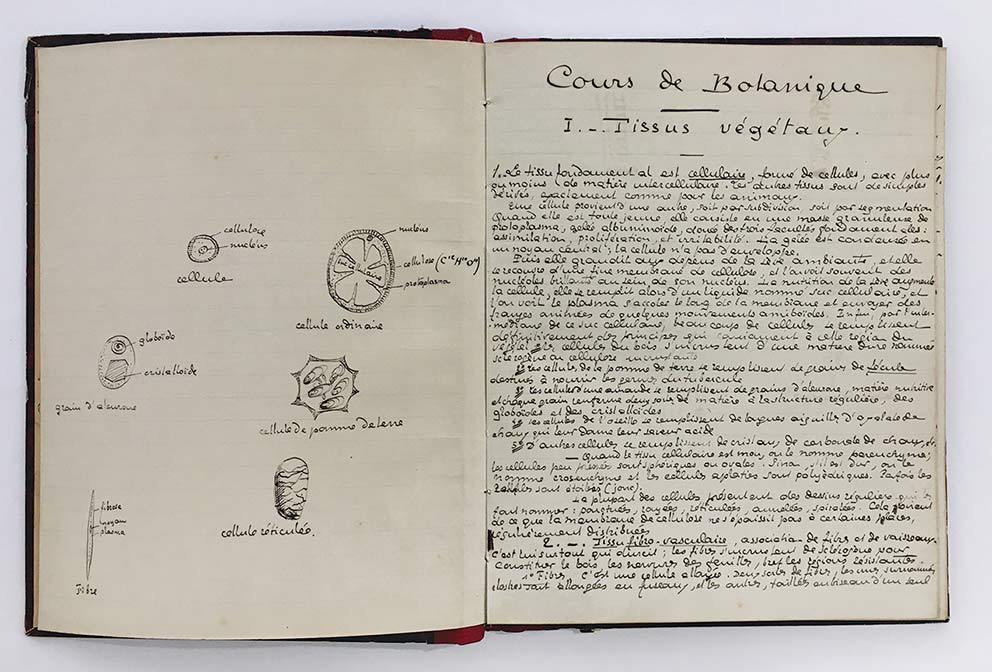 cellulose
nucléus
cellule
nucléus
cellulose (C¹²H¹⁰O¹⁰)
protoplasma
cellule ordinaire
globoïde
cristalloïde
grain d'aleurone
cellule de pomme de terre
fibrose
noyau
plasma
Fibre
cellule réticulée
Cours de Botanique
I. _ Tissus végétaux.
1. Le tissu fondamental est cellulaire, formé de cellules, avec plus
ou moins de matière intercellulaire. Les autres tissus sont de simples
dérivés, exactement comme pour les animaux.
Une cellule provient d'une autre, soit par subdivision, soit par segmentation
Quand elle est toute jeune, elle consiste en une masse granuleuse de
protoplasma, gelée albuminoïde, douée des trois facultés fondamentales:
assimilation, prolifération, et irritabilité. La gelée est condensée en
un noyau central; la cellule n'a pas d'enveloppe.
Puis elle grandit aux dépens de la sève ambiante, et elle
se recouvre d'une fine membrane de cellulose, et l'on voit souvent des
nucléoles brillants au sein de son nucléus. La nutrition de la sève augmente
la cellule, elle se remplit alors d'un liquide nommé suc cellulaire, et
l'on voit le plasma s'accoler le long de la membrane et envoyer des
franges animées de quelques mouvements amiboïdes. Enfin, par l'inter-
médiaire de ce suc cellulaire, beaucoup de cellules se remplissent
définitivement des principes qui à cette région du
végétal. Les cellules du bois s'incrustent d'une matière dure nommée
sclérogène ou cellulose incrustante
2° Les cellules de la pomme de terre se remplissent de grains de fécule
destinés à nourrir les germes du tubercule
3° Les cellules d'une amande se remplissent de grains d'aleurone, matière nutritive
et chaque grain renferme deux sortes de matière à la structure régulière, des
globoïdes et des cristalloïdes
4° Les cellules de l'oseille se remplissent de longues aiguilles d'oxalate de
chaux qui leur donne leur saveur acide
5° D'autres cellules se remplissent de cristaux de carbonate de chaux, etc.
_ Quand le tissu cellulaire est mou, on le nomme parenchyme;
les cellules peu pressées sont sphériques ou ovales. Sinon, s'il est dur, on le
nomme prosenchyme et les cellules aplaties sont polyédriques. Parfois les
cellules sont étoilées (jonc).
La plupart des cellules présentent des dessins réguliers qui les
font nommer: ponctuées, rayées, réticulées, annelées, spiralées. Cela provient
de ce que la membrane de cellulose ne s'épaissit pas à certaines places,
régulièrement distribuées
2. _ Tissu fibro-vasculaire, association de fibres et de vaisseaux.
c'est lui surtout qui durcit; les fibres s'incrustent de sclérogène pour
constituer le bois, les nervures des feuilles, bref les régions résistantes.
1° Fibres. C'est une cellule allongée. Deux sortes de fibres, les unes
sont allongées en fuseau, et les autres, taillées en biseau d'un seul